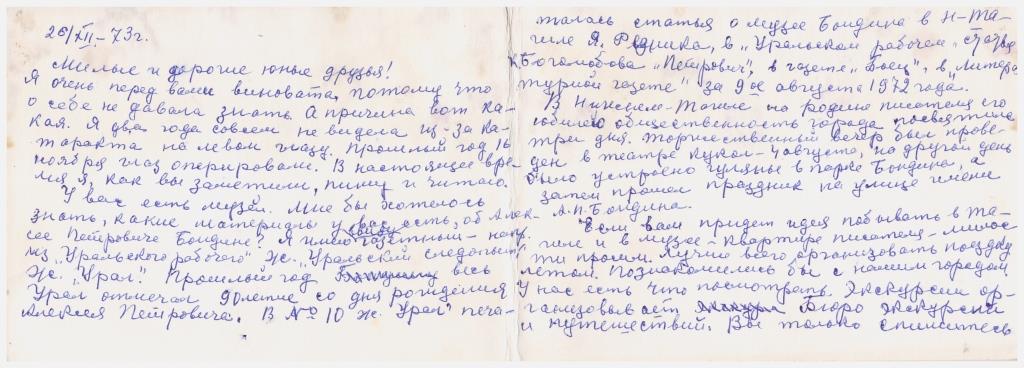 26/XII-73г.
Милые и дорогие юные друзья!
Я очень перед вами виновата, потому что
о себе не давала знать. А причина вот ка-
кая. Я два года совсем не видела из-за ка-
таракта на левом глазу. Прошлый год 16
ноября глаз оперировали. В настоящее вре-
мя я, как вы заметили, пишу и читаю.
У вас есть музей. Мне бы хотелось
знать, какие материалы у вас есть, об Алек-
сее Петровиче Бондине? Я имею газетный-
из "Уральского рабочего" Ж. "Уральский следопыт",
Ж. "Урал". Прошлый год весь
Урал отмечал 90летие со дня рождения
Алексея Петровича. В № 10 ж. "Урал" печа-
талась статья о музее Бондина в Н-Та-
гиле Я. Резника, в "Уральском рабочем" статья
К. Боголюбова "Петрович", в газете "Боец", в "Литера-
турной газете" за 9 августа 1972 года.
В Нижнем-Тагиле на родине писателя его
юбилею общественность города посвятила
три дня. Торжественный вечер был прове-
ден в театре кукол-4 августа, на другой день
было устроено гулянье в парке Бондина, а
затем прошел праздник на улице имени
А.П. Бондина.
Если вам придет идея побывать в Та-
гиле и в музее-квартире писателя-милос-
ти просим. Лучше всего организовать поездку
летом. Познакомились бы с нашим городом
У нас есть что посмотреть. Экскурсии ор-
ганизовывает Бюро экскурсий
и путешествий. Вы только спишитесь